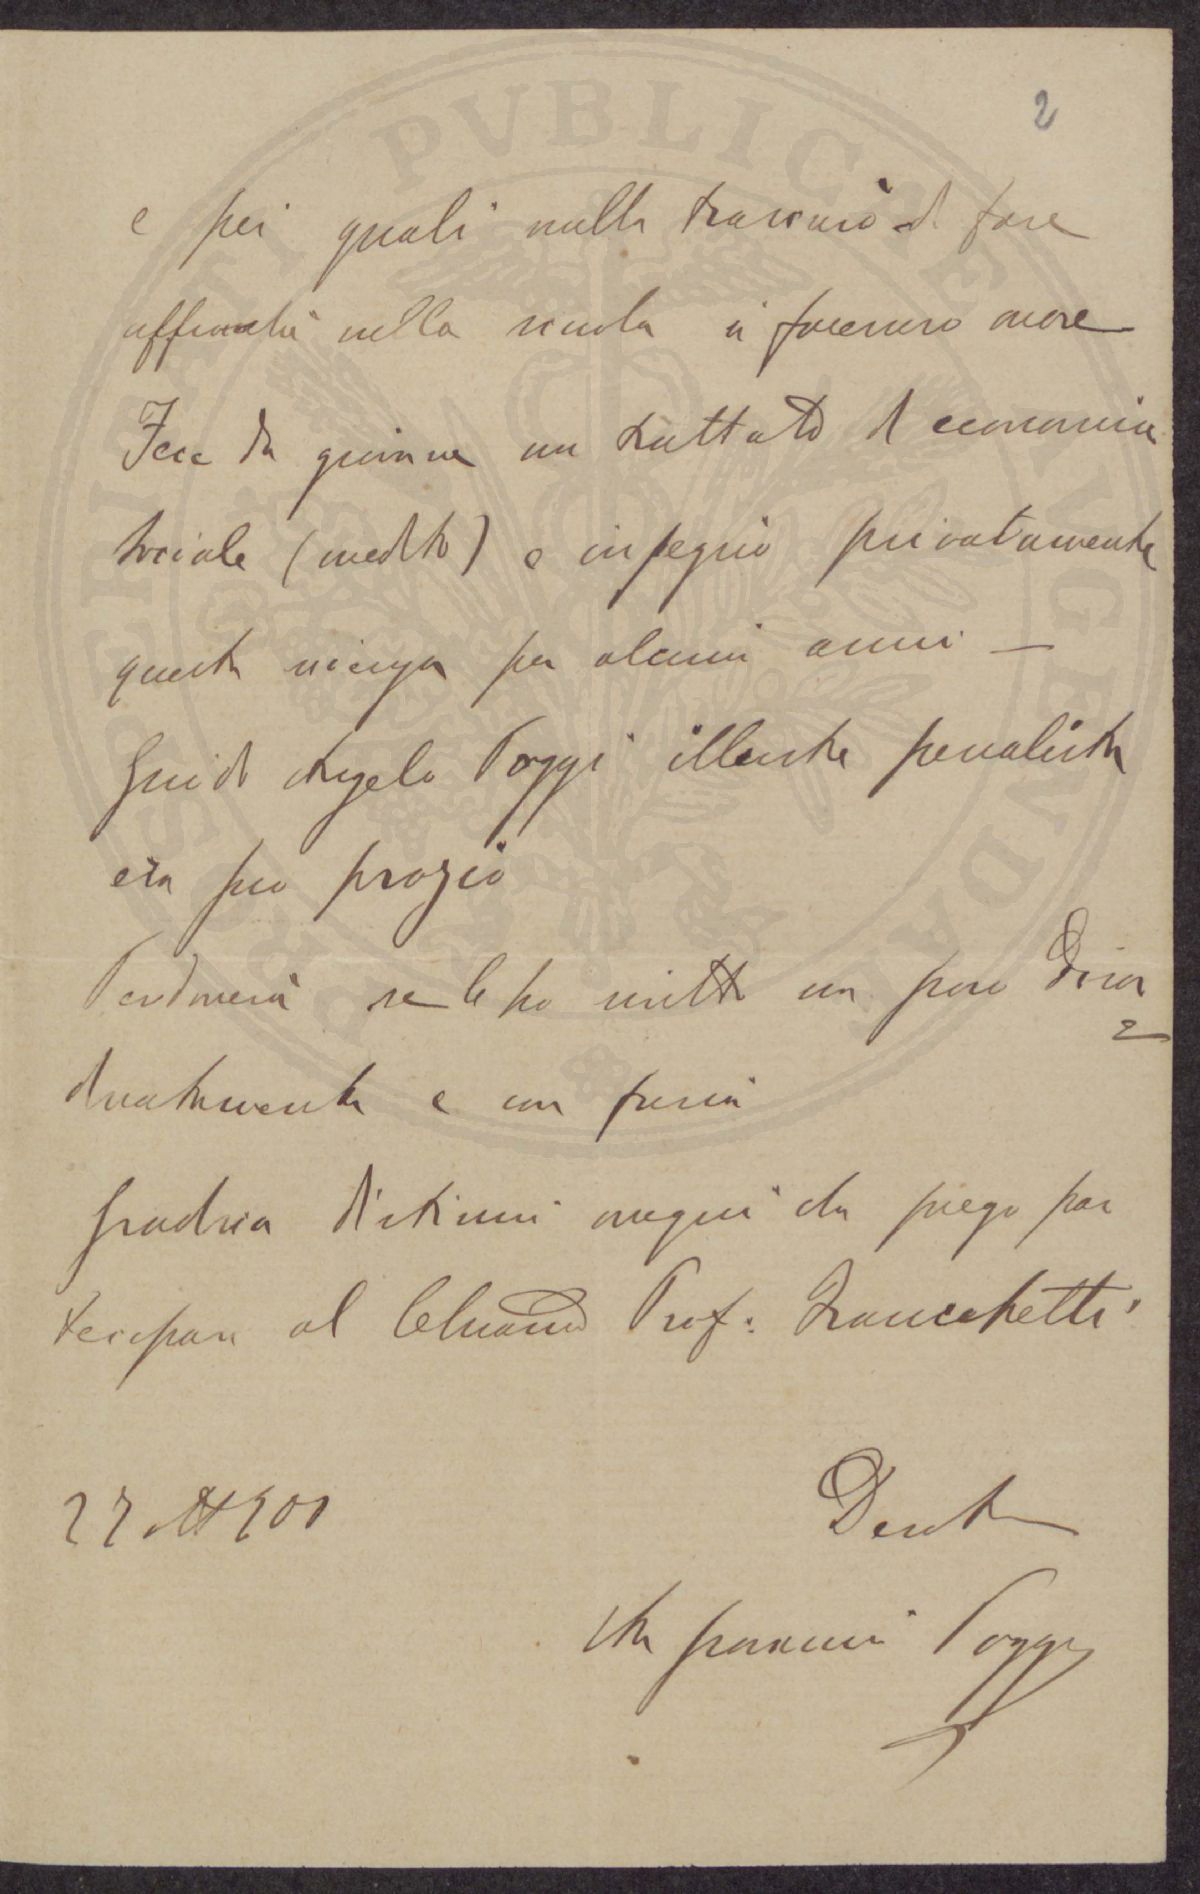 2
e pei quali nulla trascurò di fare
affinché nella scuola si facessero onore
Fece da giovane un trattato di economia
sociale (inedito) e insegnò privatamente
questa scienza per alcuni anni —
Guido Angelo Poggi illustre penalista
era suo prozio
Perdonerà se le ho scritto un poco disor
dinatamente e con furia
Gradisca distinti ossequi che prego par
tecipare al Prof: Franchetti
27 ott 900
Devta
Poggi
PROSPERITATI PVBLICAE AVGENDAE